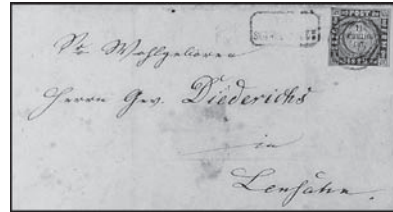 POST
Sr Wohlgeboren
Herrn Gev. Diederichs
in
Lensahn.